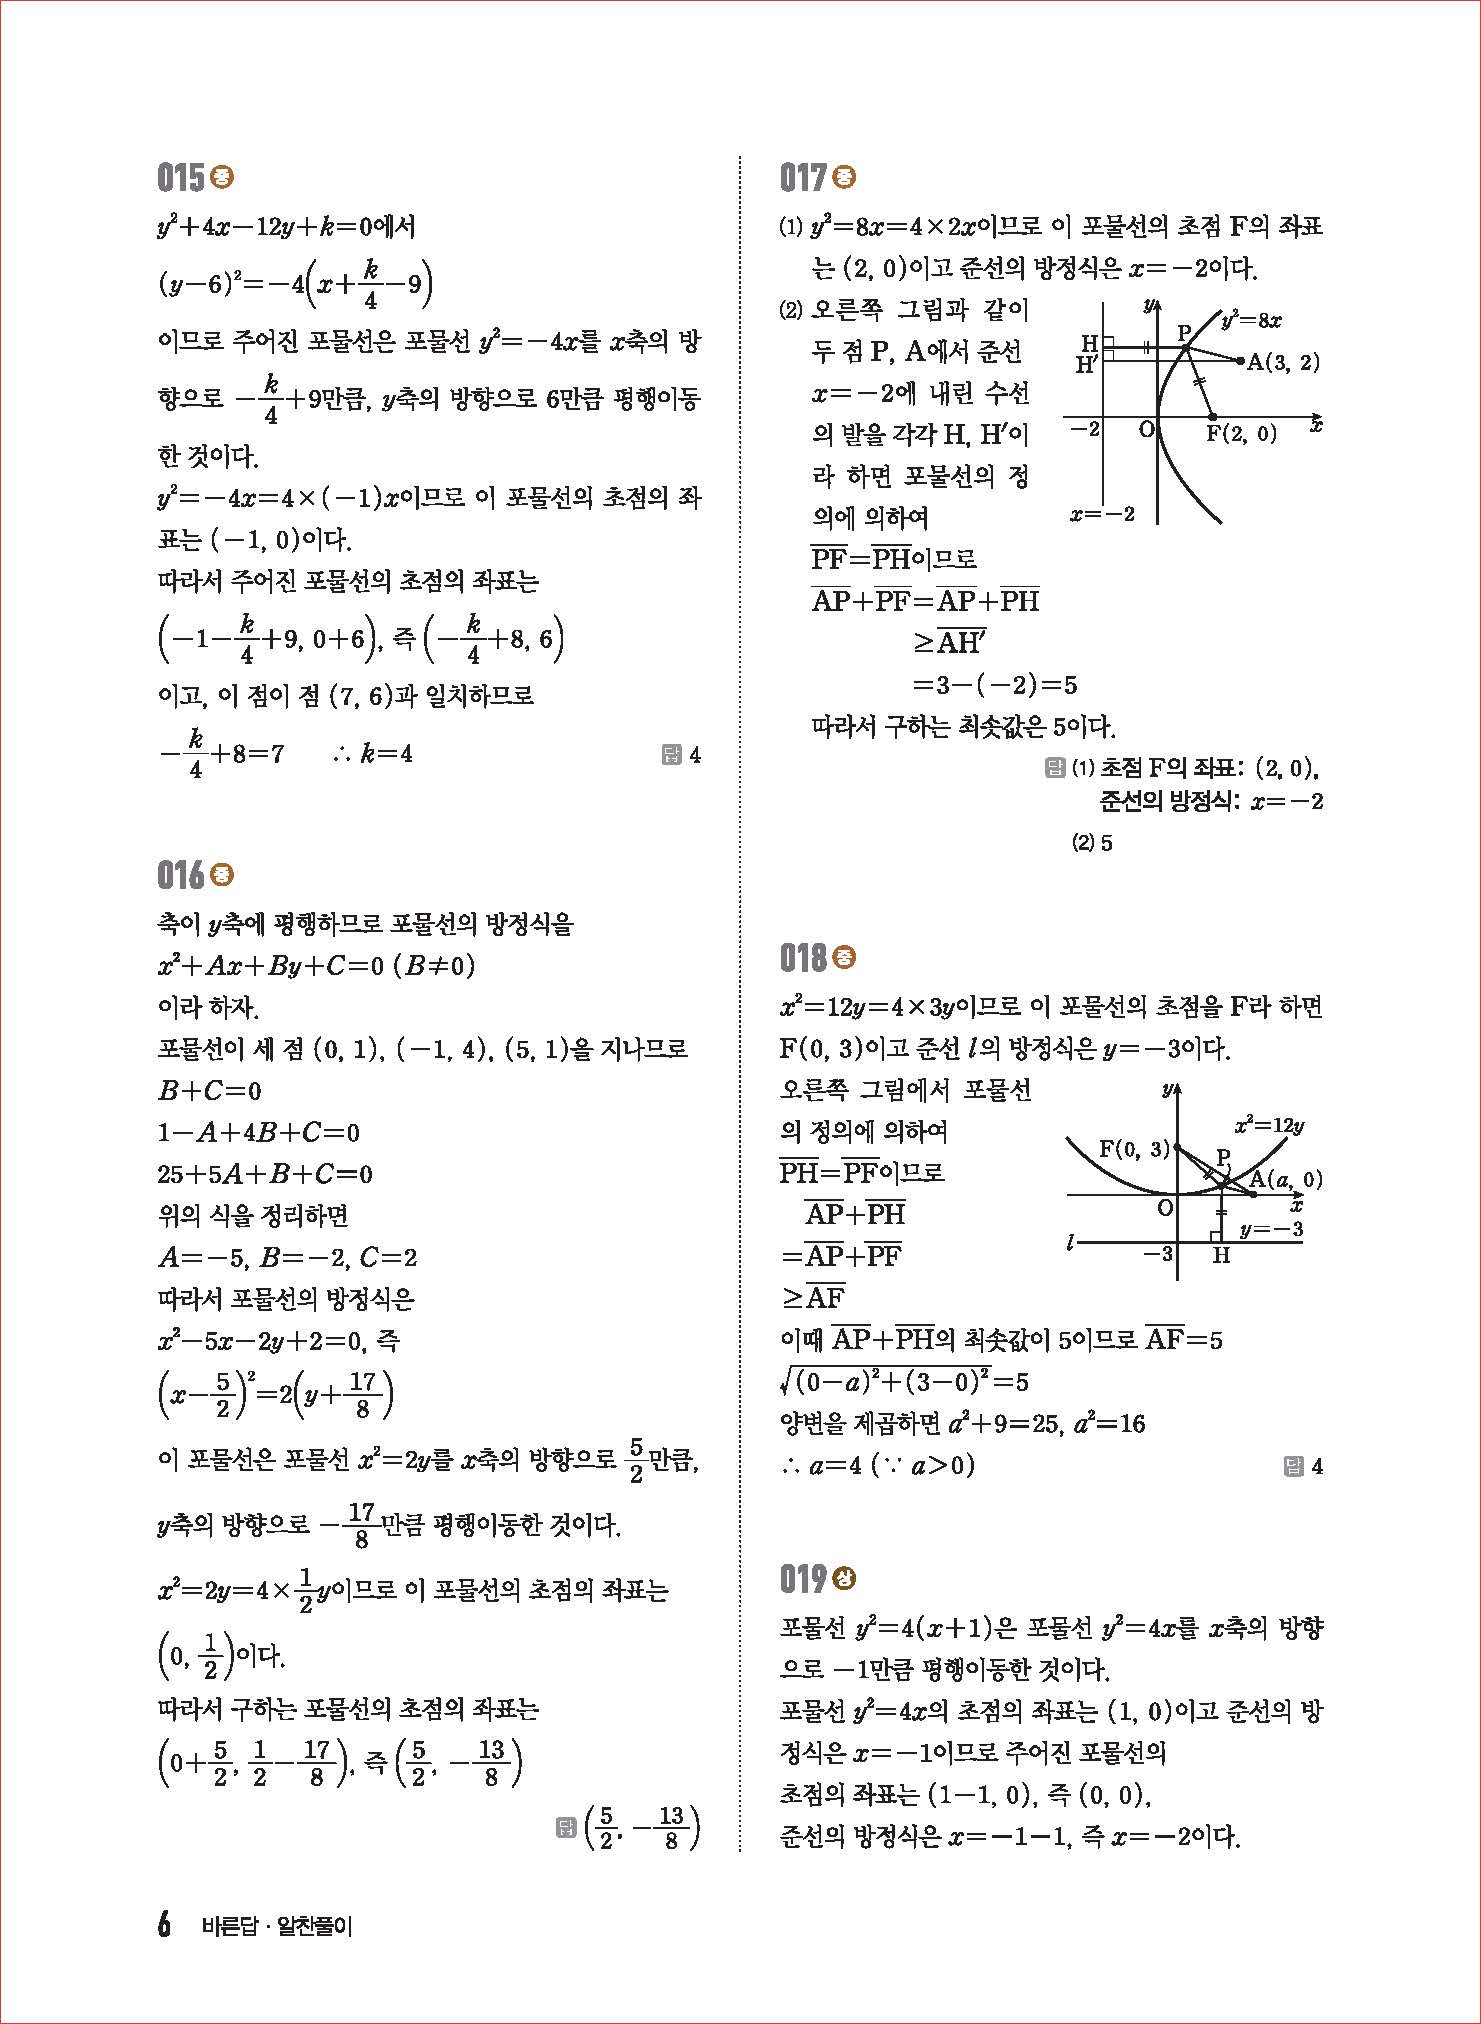 015 중
y²+4x−12y+k=0에서
(y−6)²=−4(x+k/4−9)
이므로 주어진 포물선은 포물선 y²=−4x를 x축의 방
향으로 −k/4+9만큼, y축의 방향으로 6만큼 평행이동
한 것이다.
y²=−4x=4×(−1)x이므로 이 포물선의 초점의 좌
표는 (−1, 0)이다.
따라서 주어진 포물선의 초점의 좌표는
(−1−k/4+9, 0+6), 즉 (−k/4+8, 6)
이고, 이 점이 점 (7, 6)과 일치하므로
−k/4+8=7 ∴ k=4 답 4
016 중
축이 y축에 평행하므로 포물선의 방정식을
x²+Ax+By+C=0 (B≠0)
이라 하자.
포물선이 세 점 (0, 1), (−1, 4), (5, 1)을 지나므로
B+C=0
1−A+4B+C=0
25+5A+B+C=0
위의 식을 정리하면
A=−5, B=−2, C=2
따라서 포물선의 방정식은
x²−5x−2y+2=0, 즉
(x−5/2)²=2(y+17/8)
이 포물선은 포물선 x²=2y를 x축의 방향으로 5/2만큼,
y축의 방향으로 −17/8만큼 평행이동한 것이다.
x²=2y=4×1/2y이므로 이 포물선의 초점의 좌표는
(0, 1/2)이다.
따라서 구하는 포물선의 초점의 좌표는
(0+5/2, 1/2−17/8), 즉 (5/2, −13/8)
답 (5/2, −13/8)
017 중
(1) y²=8x=4×2x이므로 이 포물선의 초점 F의 좌표
는 (2, 0)이고 준선의 방정식은 x=−2이다.
(2) 오른쪽 그림과 같이
두 점 P, A에서 준선
x=−2에 내린 수선
의 발을 각각 H, H′이
라 하면 포물선의 정
의에 의하여
y
y²=8x
H
P
H′
A(3, 2)
−2
O
F(2, 0)
x
x=−2
P̅F̅=P̅H̅이므로
A̅P̅+P̅F̅=A̅P̅+P̅H̅
≥A̅H̅′̅
=3−(−2)=5
따라서 구하는 최솟값은 5이다.
답 (1) 초점 F의 좌표: (2, 0),
준선의 방정식: x=−2
(2) 5
018 중
x²=12y=4×3y이므로 이 포물선의 초점을 F라 하면
F(0, 3)이고 준선 l의 방정식은 y=−3이다.
오른쪽 그림에서 포물선
의 정의에 의하여
P̅H̅=P̅F̅이므로
A̅P̅+P̅H̅
=A̅P̅+P̅F̅
≥A̅F̅
y
x²=12y
F(0, 3)
P
A(a, 0)
O
x
y=−3
l
−3
H
이때 A̅P̅+P̅H̅의 최솟값이 5이므로 A̅F̅=5
√((0−a)²+(3−0)²)=5
양변을 제곱하면 a²+9=25, a²=16
∴ a=4 (∵ a>0) 답 4
019 상
포물선 y²=4(x+1)은 포물선 y²=4x를 x축의 방향
으로 −1만큼 평행이동한 것이다.
포물선 y²=4x의 초점의 좌표는 (1, 0)이고 준선의 방
정식은 x=−1이므로 주어진 포물선의
초점의 좌표는 (1−1, 0), 즉 (0, 0),
준선의 방정식은 x=−1−1, 즉 x=−2이다.
6 바른답 · 알찬풀이